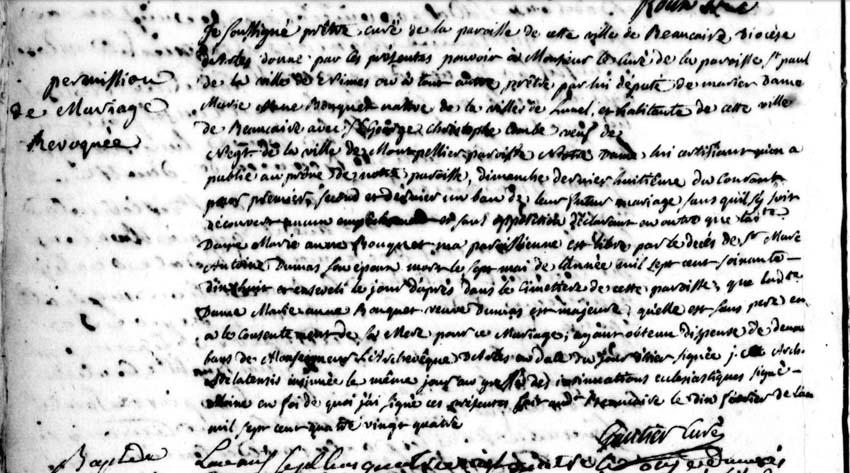 Je soussigné prêtre curé de la paroisse de cette ville de Beaucaire diocèse
d'Arles donne par les présentes pouvoir à Monsieur le Curé de la paroisse St paul
de la ville de Nimes ou à tout autre prêtre par lui député de marier Dame
Marie Anne Bouquet native de la ville de Lunel, et habitante de cette ville
de Beaucaire avec Sr George Christophe Combe veuf de
Negt de la ville de Montpellier paroisse Notre Dame lui certifiant qu'on a
publié au prône de notre paroisse, dimanche dernier huitième du Courant
pour premier, second et dernier un ban de leur futur mariage sans quil sy soit
découvert aucun empêchement et sans opposition déclarant en outre que ladte
Dame Marie anne Bouquet ma paroissienne est libre par le decés de Sr Marc
Antoine Dumas son époux mort le sept mai de lannée mil sept cent soixante
dix huit et enseveli le jour d'après dans le Cimetière de cette paroisse, que ladte
Dame Marie anne Bouquet veuve Dumas est majeure, quelle est sans pere en
a le Consentement de sa Mere pour ce Mariage, ayant obtenu dispense de deux
bans de Monseigneur l'Archevêque d'Arles en date du jour d'hier signée j. m. Arch.
Arelatensis insinuée le même jour au greffe des insinuations eclesiastiques signé
Moine en foi de quoi jai signé ces présentes fait aud. Beaucaire le dix février de lan
mil sept cent quatre vingt quatre
Gautier Curé
permission
de Mariage
Revoquée
Baptême